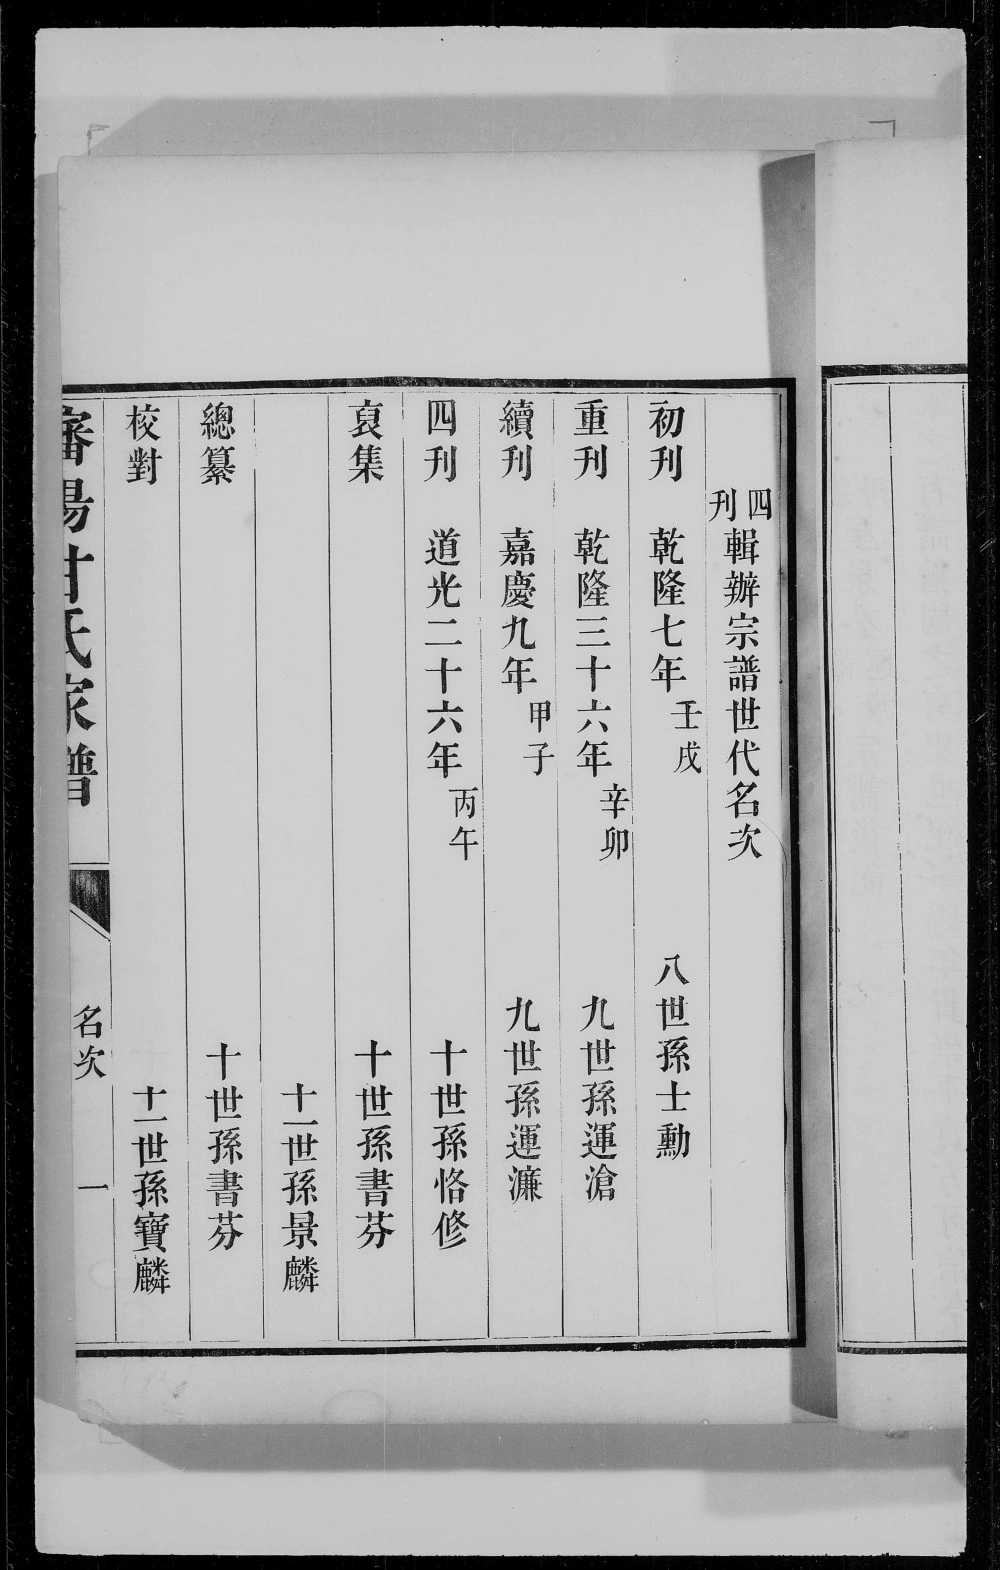 四刊輯辦宗譜世代名次
初刊　乾隆七年壬戌　八世孫士勳
重刊　乾隆三十六年辛卯　九世孫運滄
續刊　嘉慶九年甲子　九世孫運濂
四刊　道光二十六年丙午　十世孫恪修
裒集　十世孫書芬
十一世孫景麟
總纂　十世孫書芬
校對　十一世孫寶麟
瀋陽甘氏家譜　名次　一